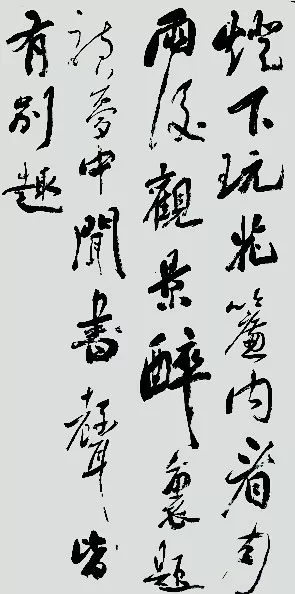 燈下玩花簾内看月
雨後觀景醉裏題
詩夢中聞書聲皆
有别趣